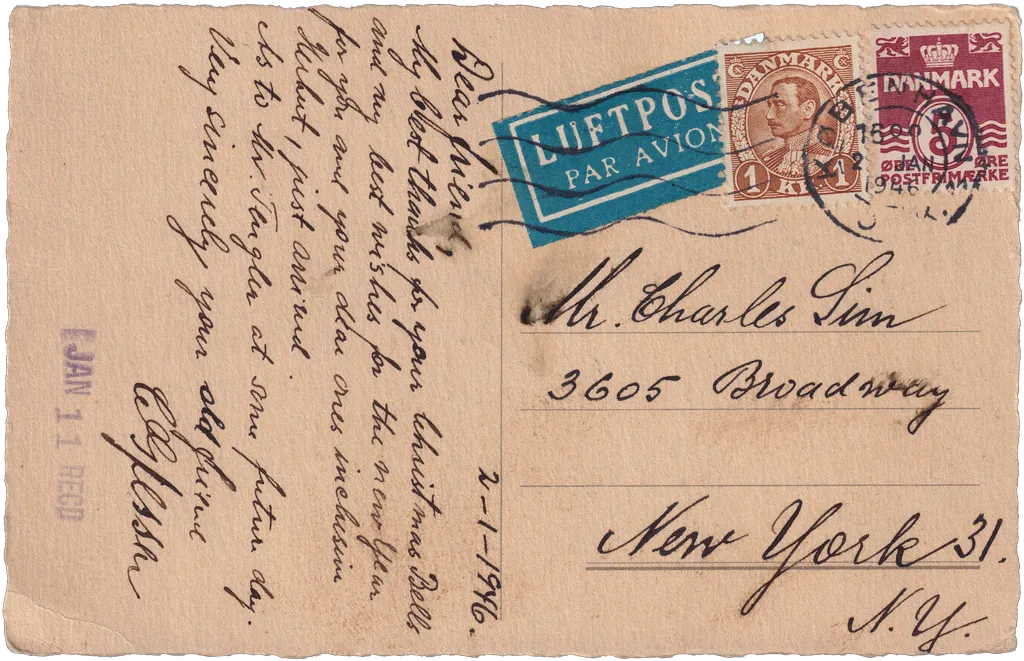 2-1-1946.
Dear friend,
My best thanks for your Christmas Bells
and my best wishes for the new Year
for you and your dear ones inclusive
Herbert, just arrived.
As to Mr. at some future day.
Very sincerely your old friend
JAN 11 RECD
LUFTPOST
PAR AVION
DANMARK
1 KR 1
DANMARK
5
ØRE ØRE
POSTFRIMÆRKE
KØBENHAVN
JAN
1946
Mr. Charles Sim
3605 Broadway
New York 31.
N.Y.